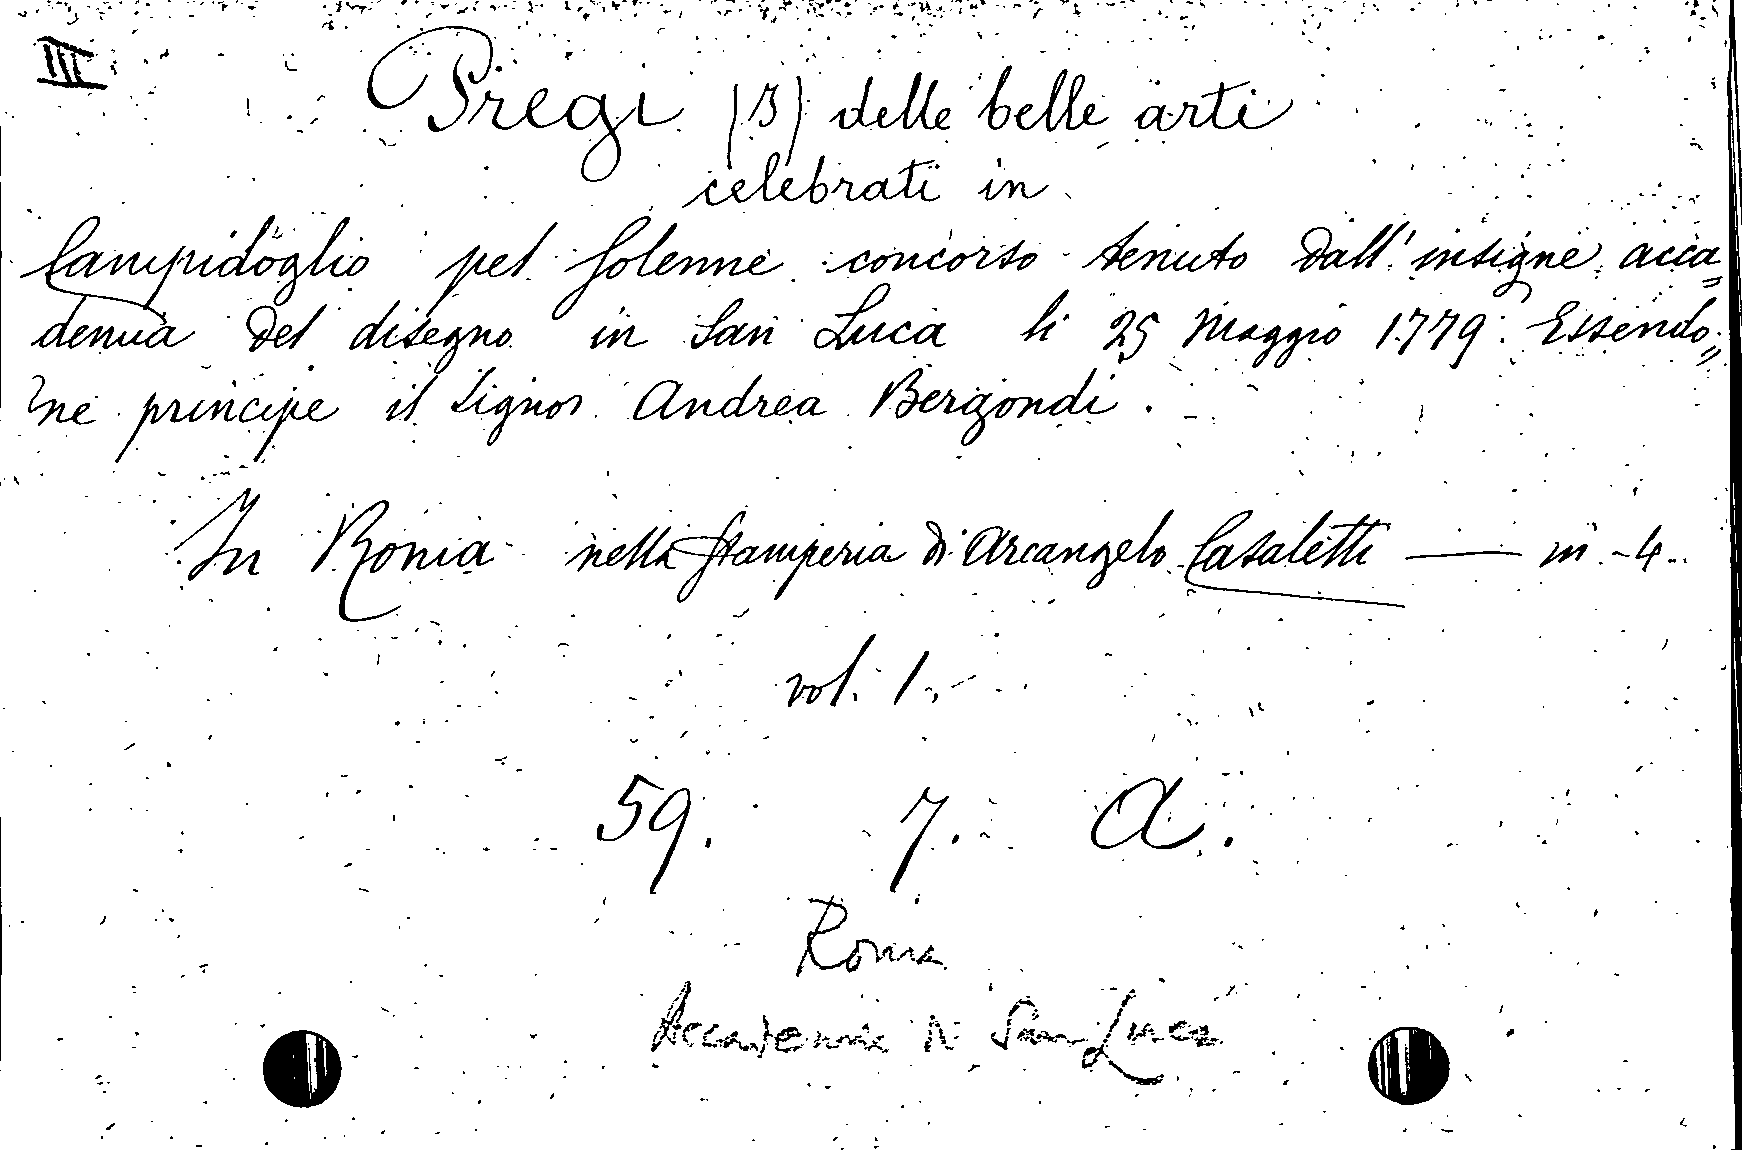 III
Pregi (B) delle belle arti
celebrati in
Campidoglio pel solenne concorso tenuto dall'insigne acca=
demia del disegno in San Luca li 25 Maggio 1779. Essendo=
ne principe il Signor Andrea Bergondi.
In Roma nella stamperia di Arcangelo Casaletti — in - 4.
vol. 1.
59. 7. A.
Roma
Accademia di San Luca